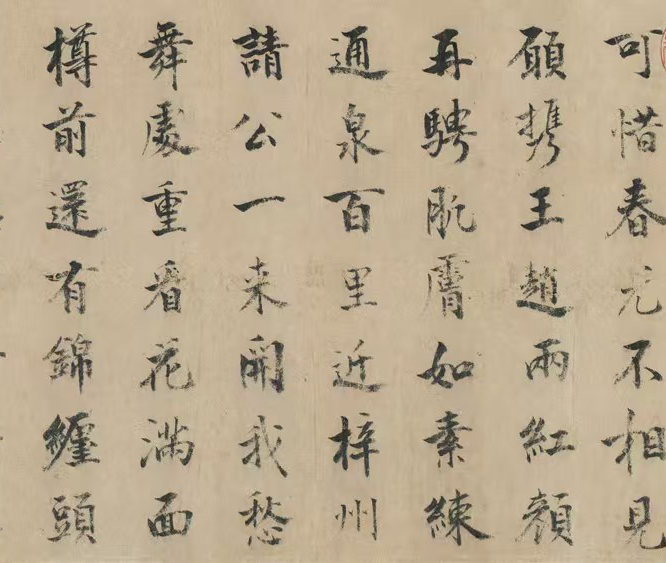 可惜春光不相見
願携王趙兩紅顔
再騁肌膚如素練
通泉百里近梓州
請公一来開我愁
舞處重看花滿面
樽前還有錦纏頭